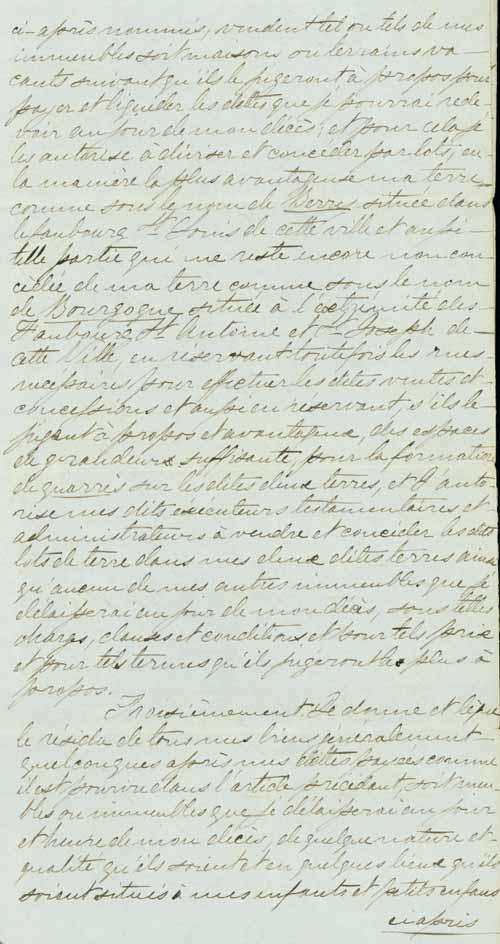 ci-après nommés, vendent tel ou tels de mes
immeubles soit maisons ou terrains va-
cants suivant qu'ils le jugeront à propos pour
payer et liquider les dettes que je pourrai rede-
voir au jour de mon décès; et pour cela je
les autorise à diviser et concéder par lots, en
la manière la plus avantageuse ma terre
connue sous le nom de située dans
le faubourg St Louis de cette ville et aussi
telle partie qui me reste encore non con-
cédée de ma terre connue sous le nom
de Bourgogne située à l'extrémité des
Faubourg St Antoine et St Joseph de
cette Ville, en réservant toutefois les rues
nécessaires pour effectuer les dites ventes et
concessions et aussi en réservant, s'ils le
jugent à propos et avantageux, des espaces
de grandeurs suffisante, pour la formation
de quarrés sur les dites deux terres, et j'auto-
rise mes dits exécuteurs testamentaires et
administrateurs à vendre et concéder les dits
lots de terre dans mes deux dites terres ainsi
qu'aucun de mes autres immeubles que je
délaisserai au jour de mon décès, sous telles
charges, clauses et conditions et pour tels prix
et pour tels termes qu'ils jugeront le plus à
propos.
Troisièmement. Je donne et lègue
le résidu de tous mes biens généralement
quelconques après mes dettes payées comme
il est pourvu dans l'article précédant, soit meu-
bles ou immeubles que je délaisserai au jour
et heure de mon décès, de quelque nature et
qualité qu'ils soient et en quelques lieux qu'ils
soient situés à mes enfants et petits enfans
ci après